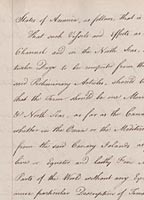 States of America, as follows, that is
That such Vessels and Effects as
Channel and in the North Seas,
twelve Days to be computed from the
said Preliminary Articles, should be
that the Term should be one Mon
North Seas, as far as the Canar
whether in the Ocean or the Mediterr
from the said Canary Islands as
Line or Equator and lastly Five M
Parts of the World without any Ex
more particular Description of Time